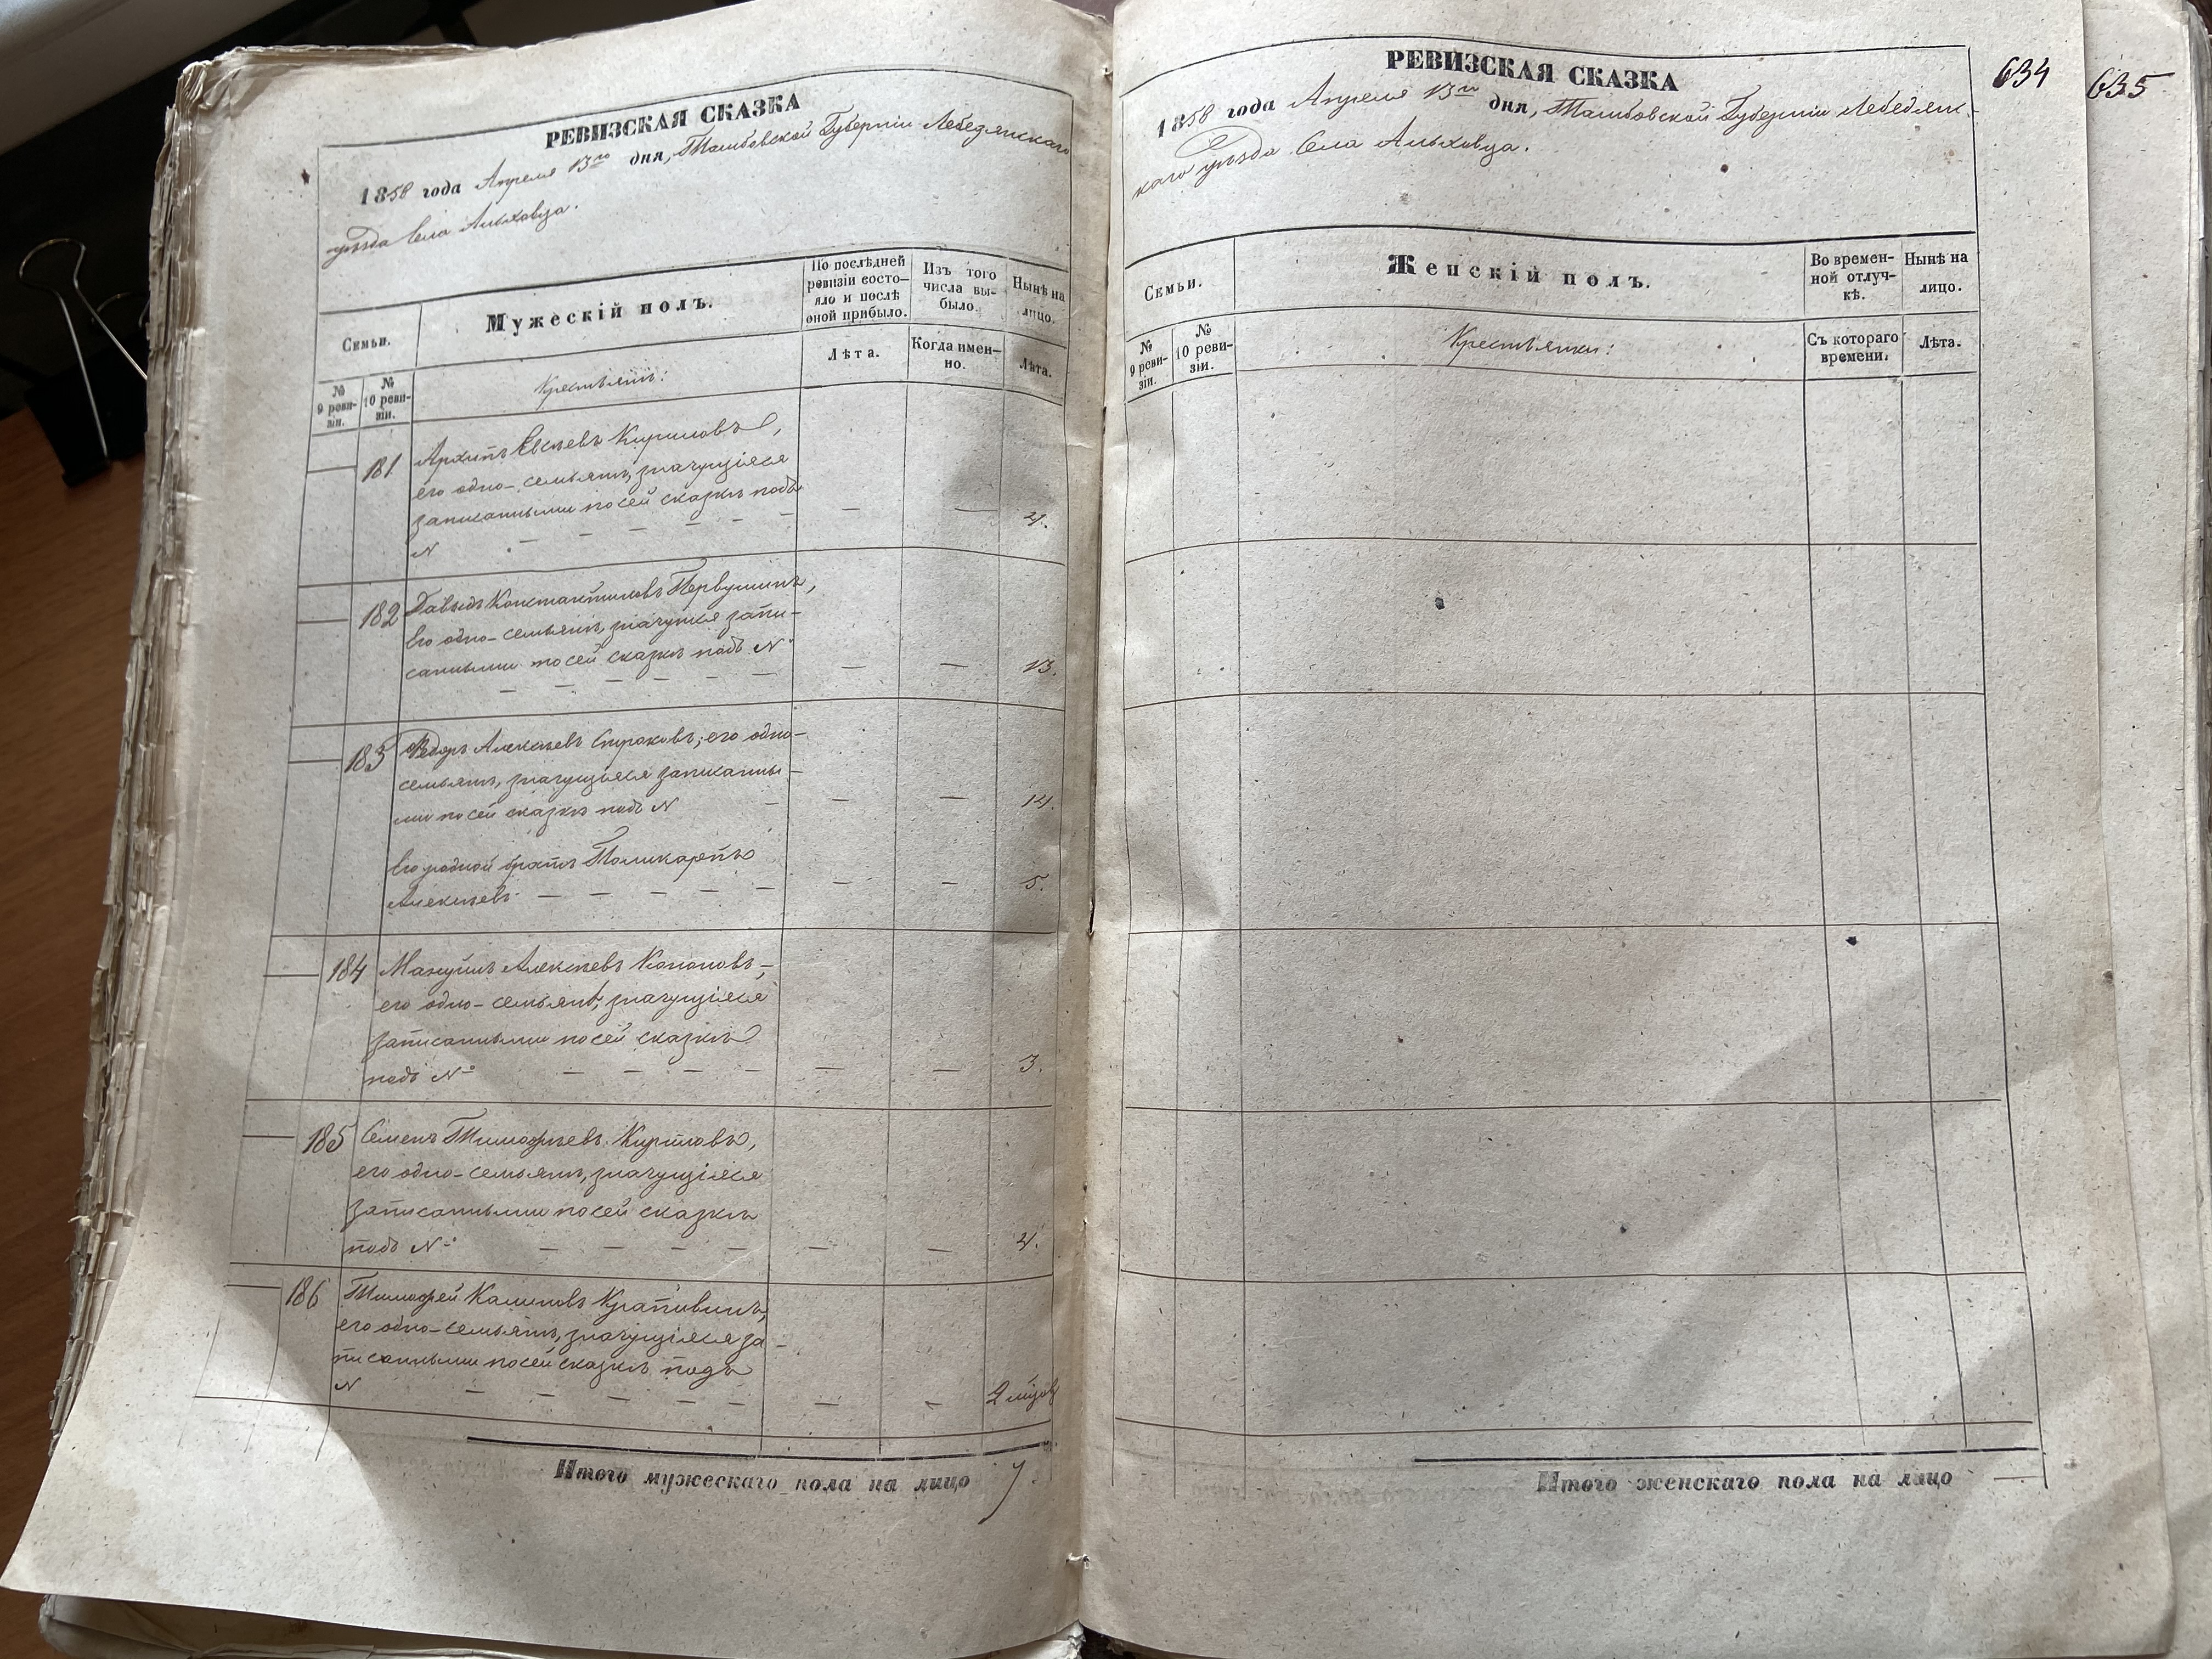 РЕВИЗСКАЯ СКАЗКА
1858 года Апреля 13го дня, Тамбовской Губерніи Лебедянскаго
уѣзда Села Ольховца.
Семьи.
Мужескій полъ.
По послѣдней
ревизіи состо-
яло и послѣ
оной прибыло.
Изъ того
числа вы-
было.
Нынѣ на
лицо.
№
9 реви-
зіи.
№
10 реви-
зіи.
Крестьяне:
Лѣта.
Когда имен-
но.
Лѣта.
181 Архипъ Евсѣевъ Кириловъ,
его одно-семьяне, значущіяся
записанными по сей сказкѣ подъ
N — — — — — — 4.
182 Давыдъ Константиновъ Первушинъ,
Его одно-семьяне, значущіяся запи-
санными по сей сказкѣ подъ N°
— — — — — — — 13.
183 Ѳедоръ Алексѣевъ Строковъ, его одно-
семьяне, значущіяся записанны-
ми по сей сказкѣ подъ N — — — 14.
Его родной братъ Поликарпъ
Алексѣевъ — — — — — — 5.
184 Мануйлъ Алексѣевъ Кононовъ,
его одно-семьяне, значущіяся
записанными по сей сказкѣ
подъ N° — — — — — — 3.
185 Семенъ Тимофѣевъ Кириловъ,
его одно-семьяне, значущіяся
записанными по сей сказкѣ
подъ N° — — — — — — 4.
186 Тимофей Калиновъ Крапивинъ,
его одно-семьяне, значущіяся за-
писанными по сей сказкѣ подъ
N — — — — — — —
Итого мужескаго пола на лицо 7.
РЕВИЗСКАЯ СКАЗКА
634
635
1858 года Апреля 13го дня, Тамбовской Губерніи Лебедянс-
каго уѣзда Села Ольховца.
Семьи.
Женскій полъ.
Во времен-
ной отлуч-
кѣ.
Нынѣ на
лицо.
№
9 реви-
зіи.
№
10 реви-
зіи.
Крестьянки:
Съ котораго
времени.
Лѣта.
Итого женскаго пола на лицо —